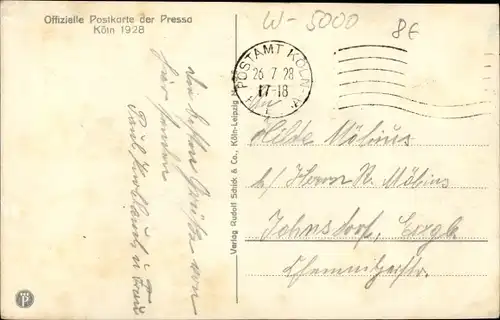 Offizielle Postkarte der Pressa
Köln 1928
W-5000
8€
POSTAMT KÖLN
26 7 28
17-18
Die besten Grüße von
hier senden
Paul u Frau
Verlag Rudolf Schick & Co., Köln-Leipzig
Hilde Möbius
b/ Herrn R. Möbius
Jahnsdorf, Erzgb
Chemnitzerstr.